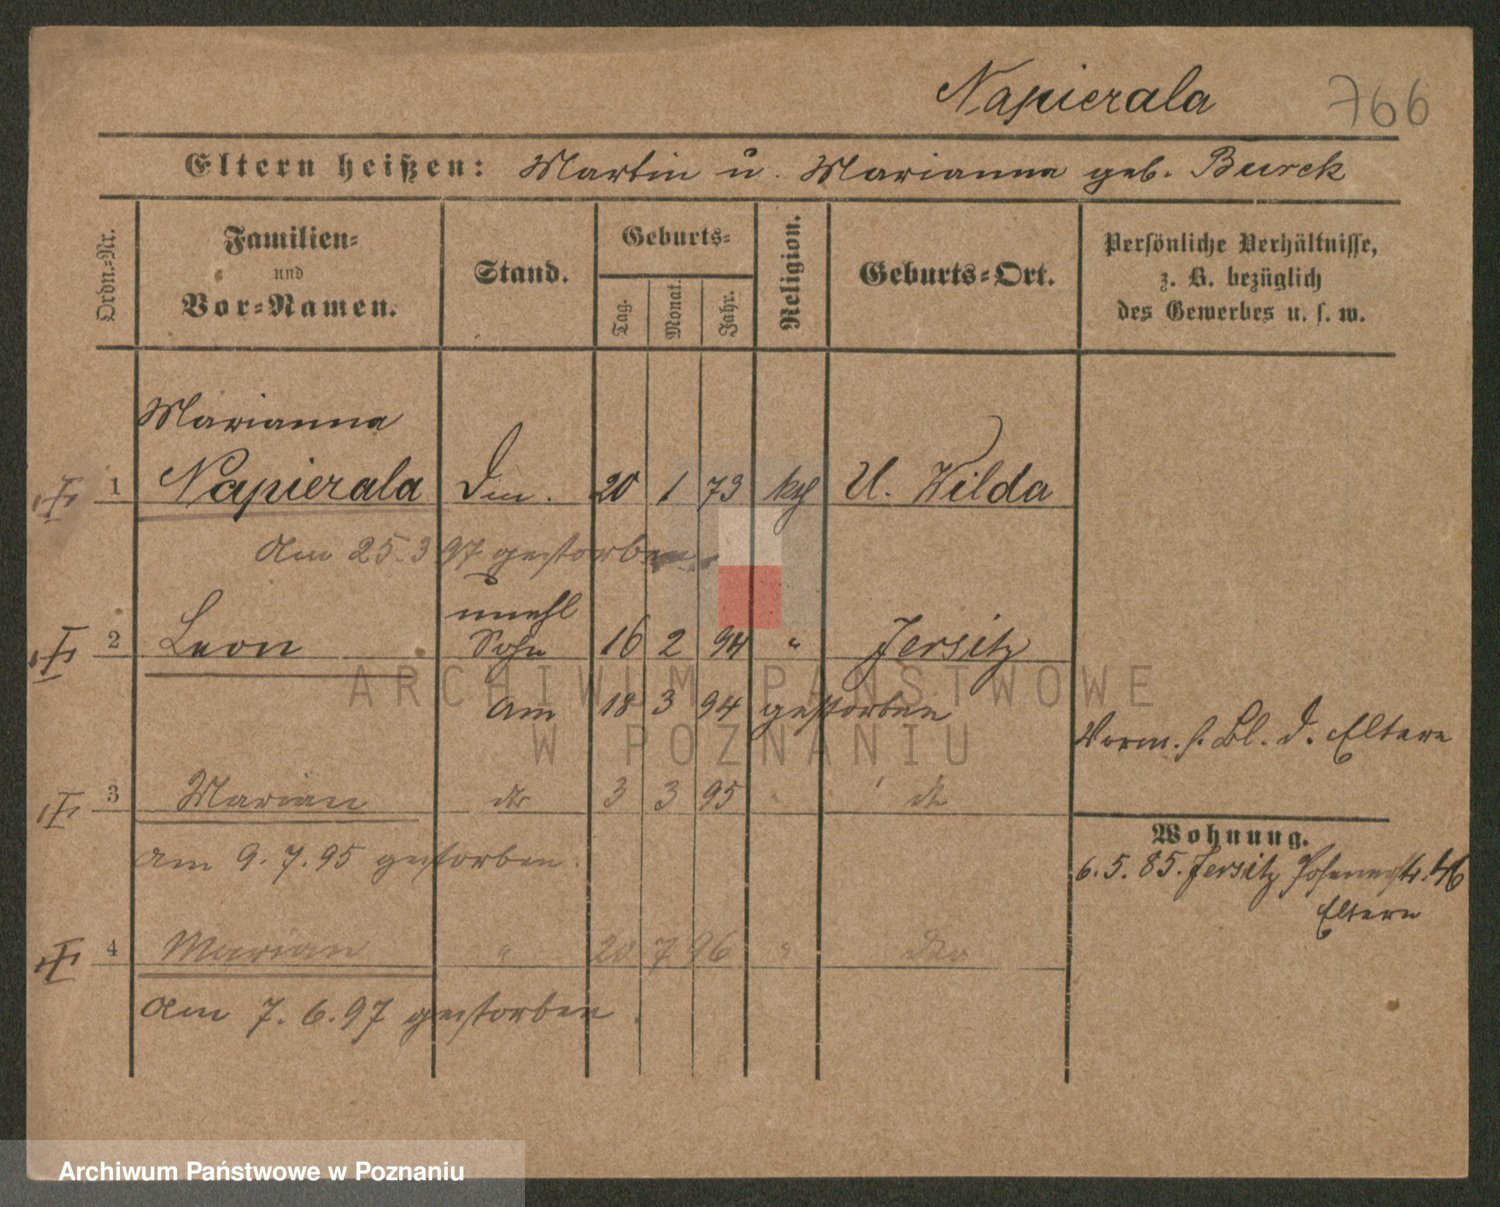 Napierala 766
Eltern heißen: Martin u. Marianna geb. Burek
Ordn.-Nr.
Familien-
und
Vor-Namen.
Stand.
Geburts-
Tag.
Monat.
Jahr.
Religion.
Geburts-Ort.
Persönliche Verhältnisse,
z. B. bezüglich
des Gewerbes u. s. w.
Marianna
1 Napierala 20 1 73 kth U. Wilda
Am 25.3 97 gestorben
unehl
2 Leon Sohn 16 2 94 " Jersitz
am 18 3 94 gestorben
Vorm. s. Bl. d. Eltern
3 Marian dto 3 3 95 " dto
am 9. 7. 95 gestorben.
Wohnung.
6. 5. 85. Jersitz Posenerstr. 46
Eltern
4 Marian " 20 7 96 " dto
Am 7. 6. 97 gestorben.
ARCHIWUM PAŃSTWOWE
W POZNANIU
Archiwum Państwowe w Poznaniu